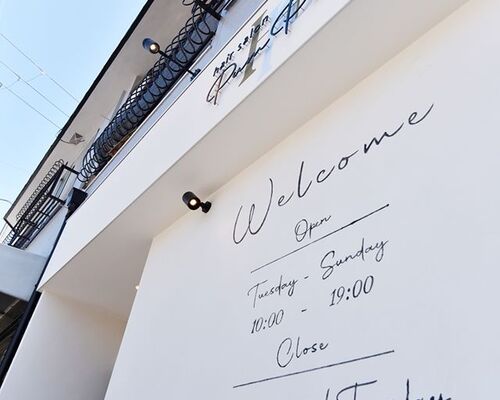 hair salon
Welcome
Open
Tuesday - Sunday
10:00 - 19:00
Close